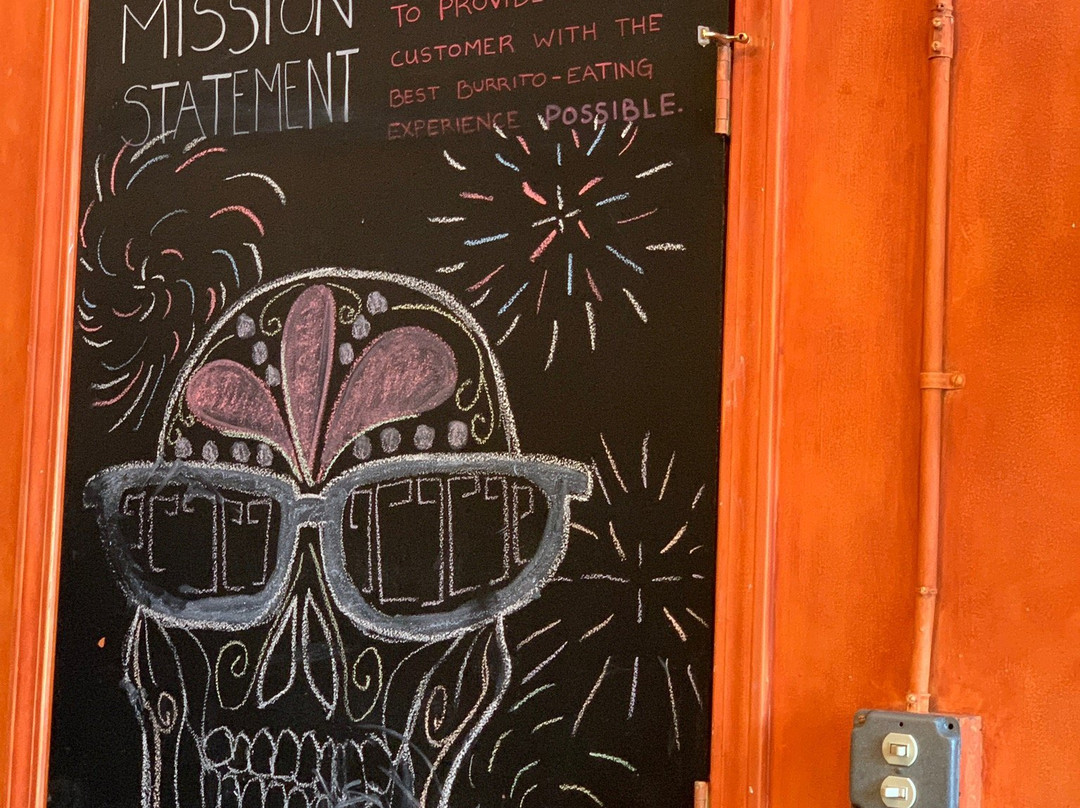 MISSION
STATEMENT
TO PROVIDE
CUSTOMER WITH THE
BEST BURRITO-EATING
EXPERIENCE POSSIBLE.